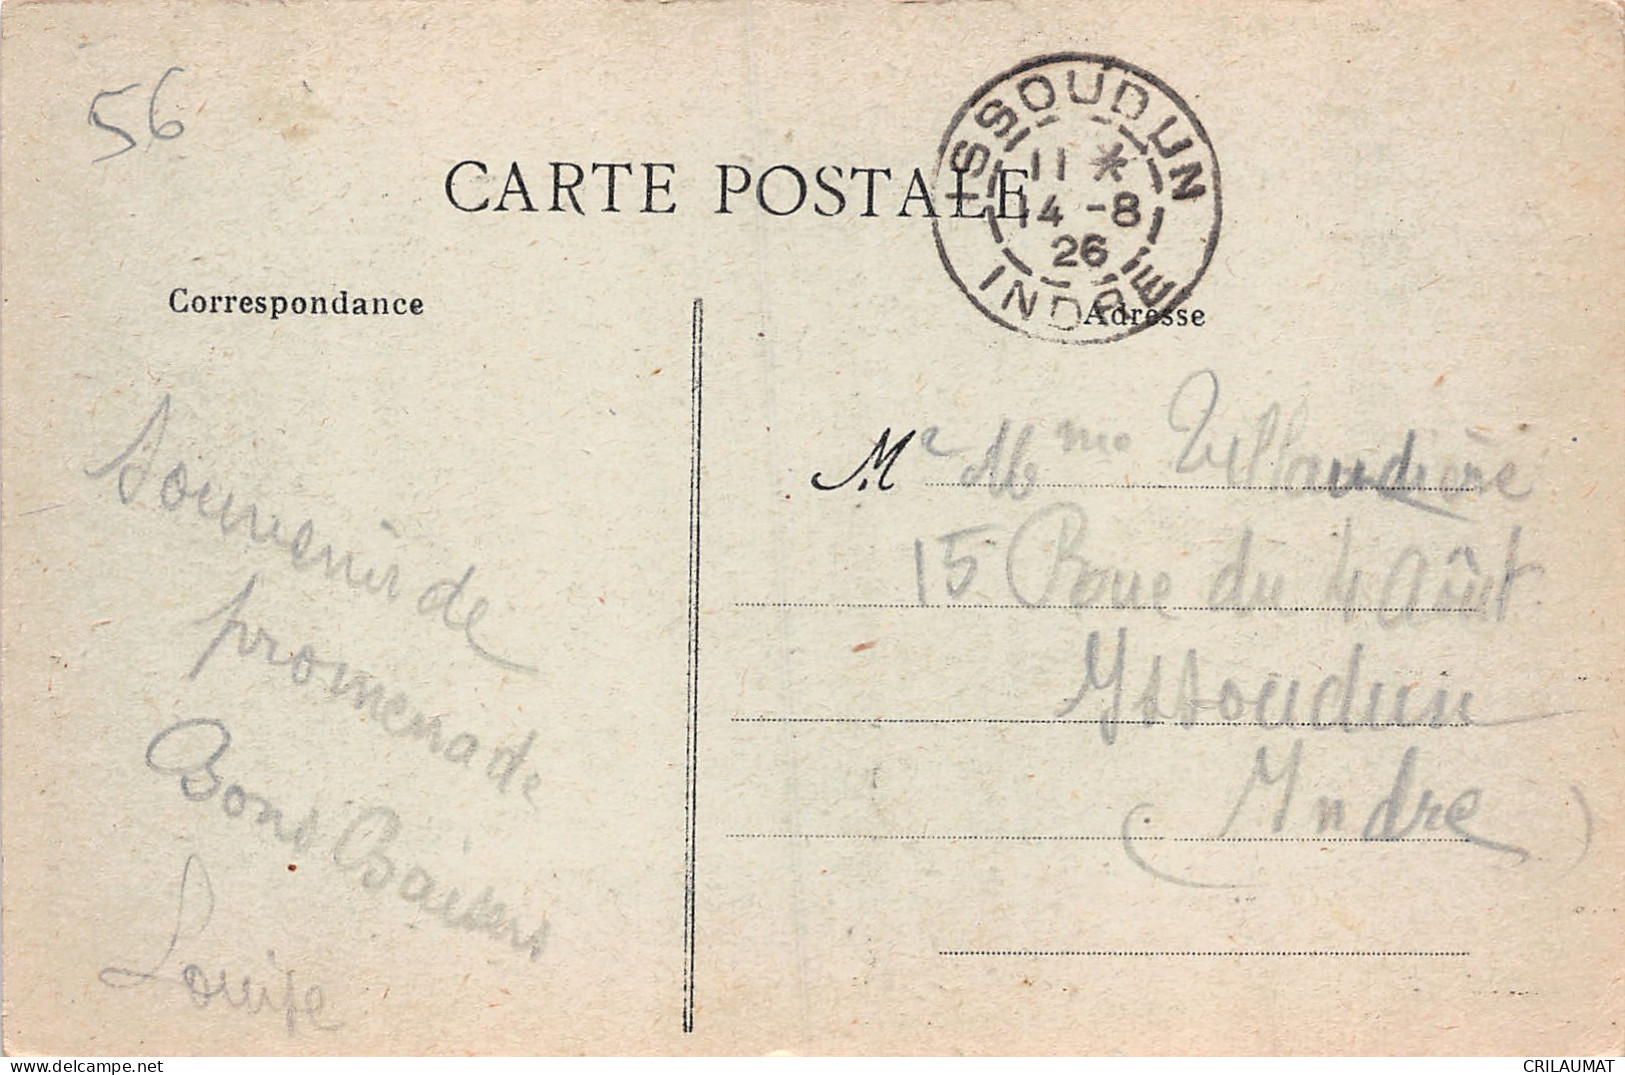 56
CARTE POSTALE
ISSOUDUN
11 *
14 -8
26
INDRE
Correspondance
Adresse
Souvenir de
promenade
Bons Baisers
Louise
M r Mme
15 Roue du 4 Août
Yssoudun
(Yndre)
delcampe.net
CRILAUMAT